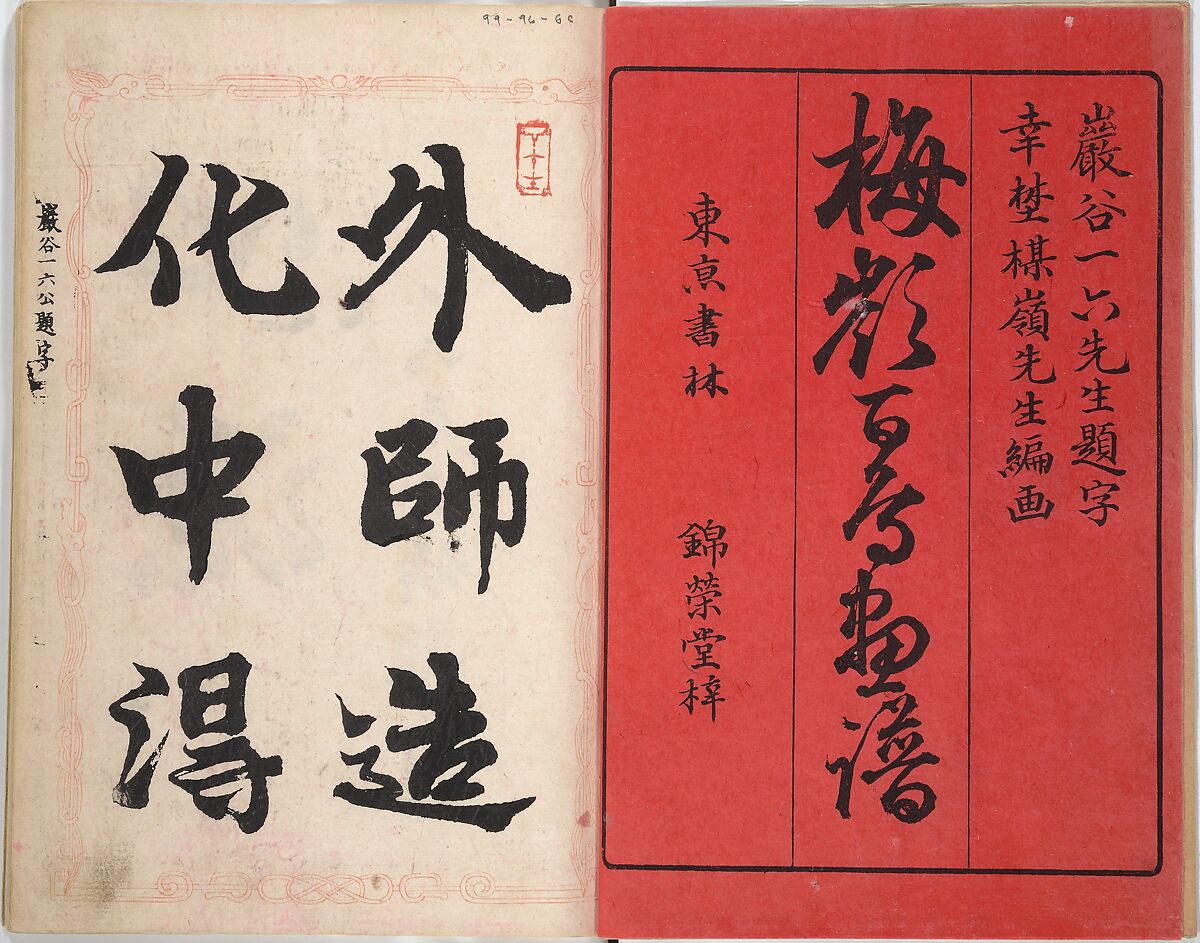 巖谷一六先生題字
幸埜楳嶺先生編画
梅嶺百鳥畫譜
東京書林　錦榮堂梓
外師造
化中得
巖谷一六公題字
99-96-6C